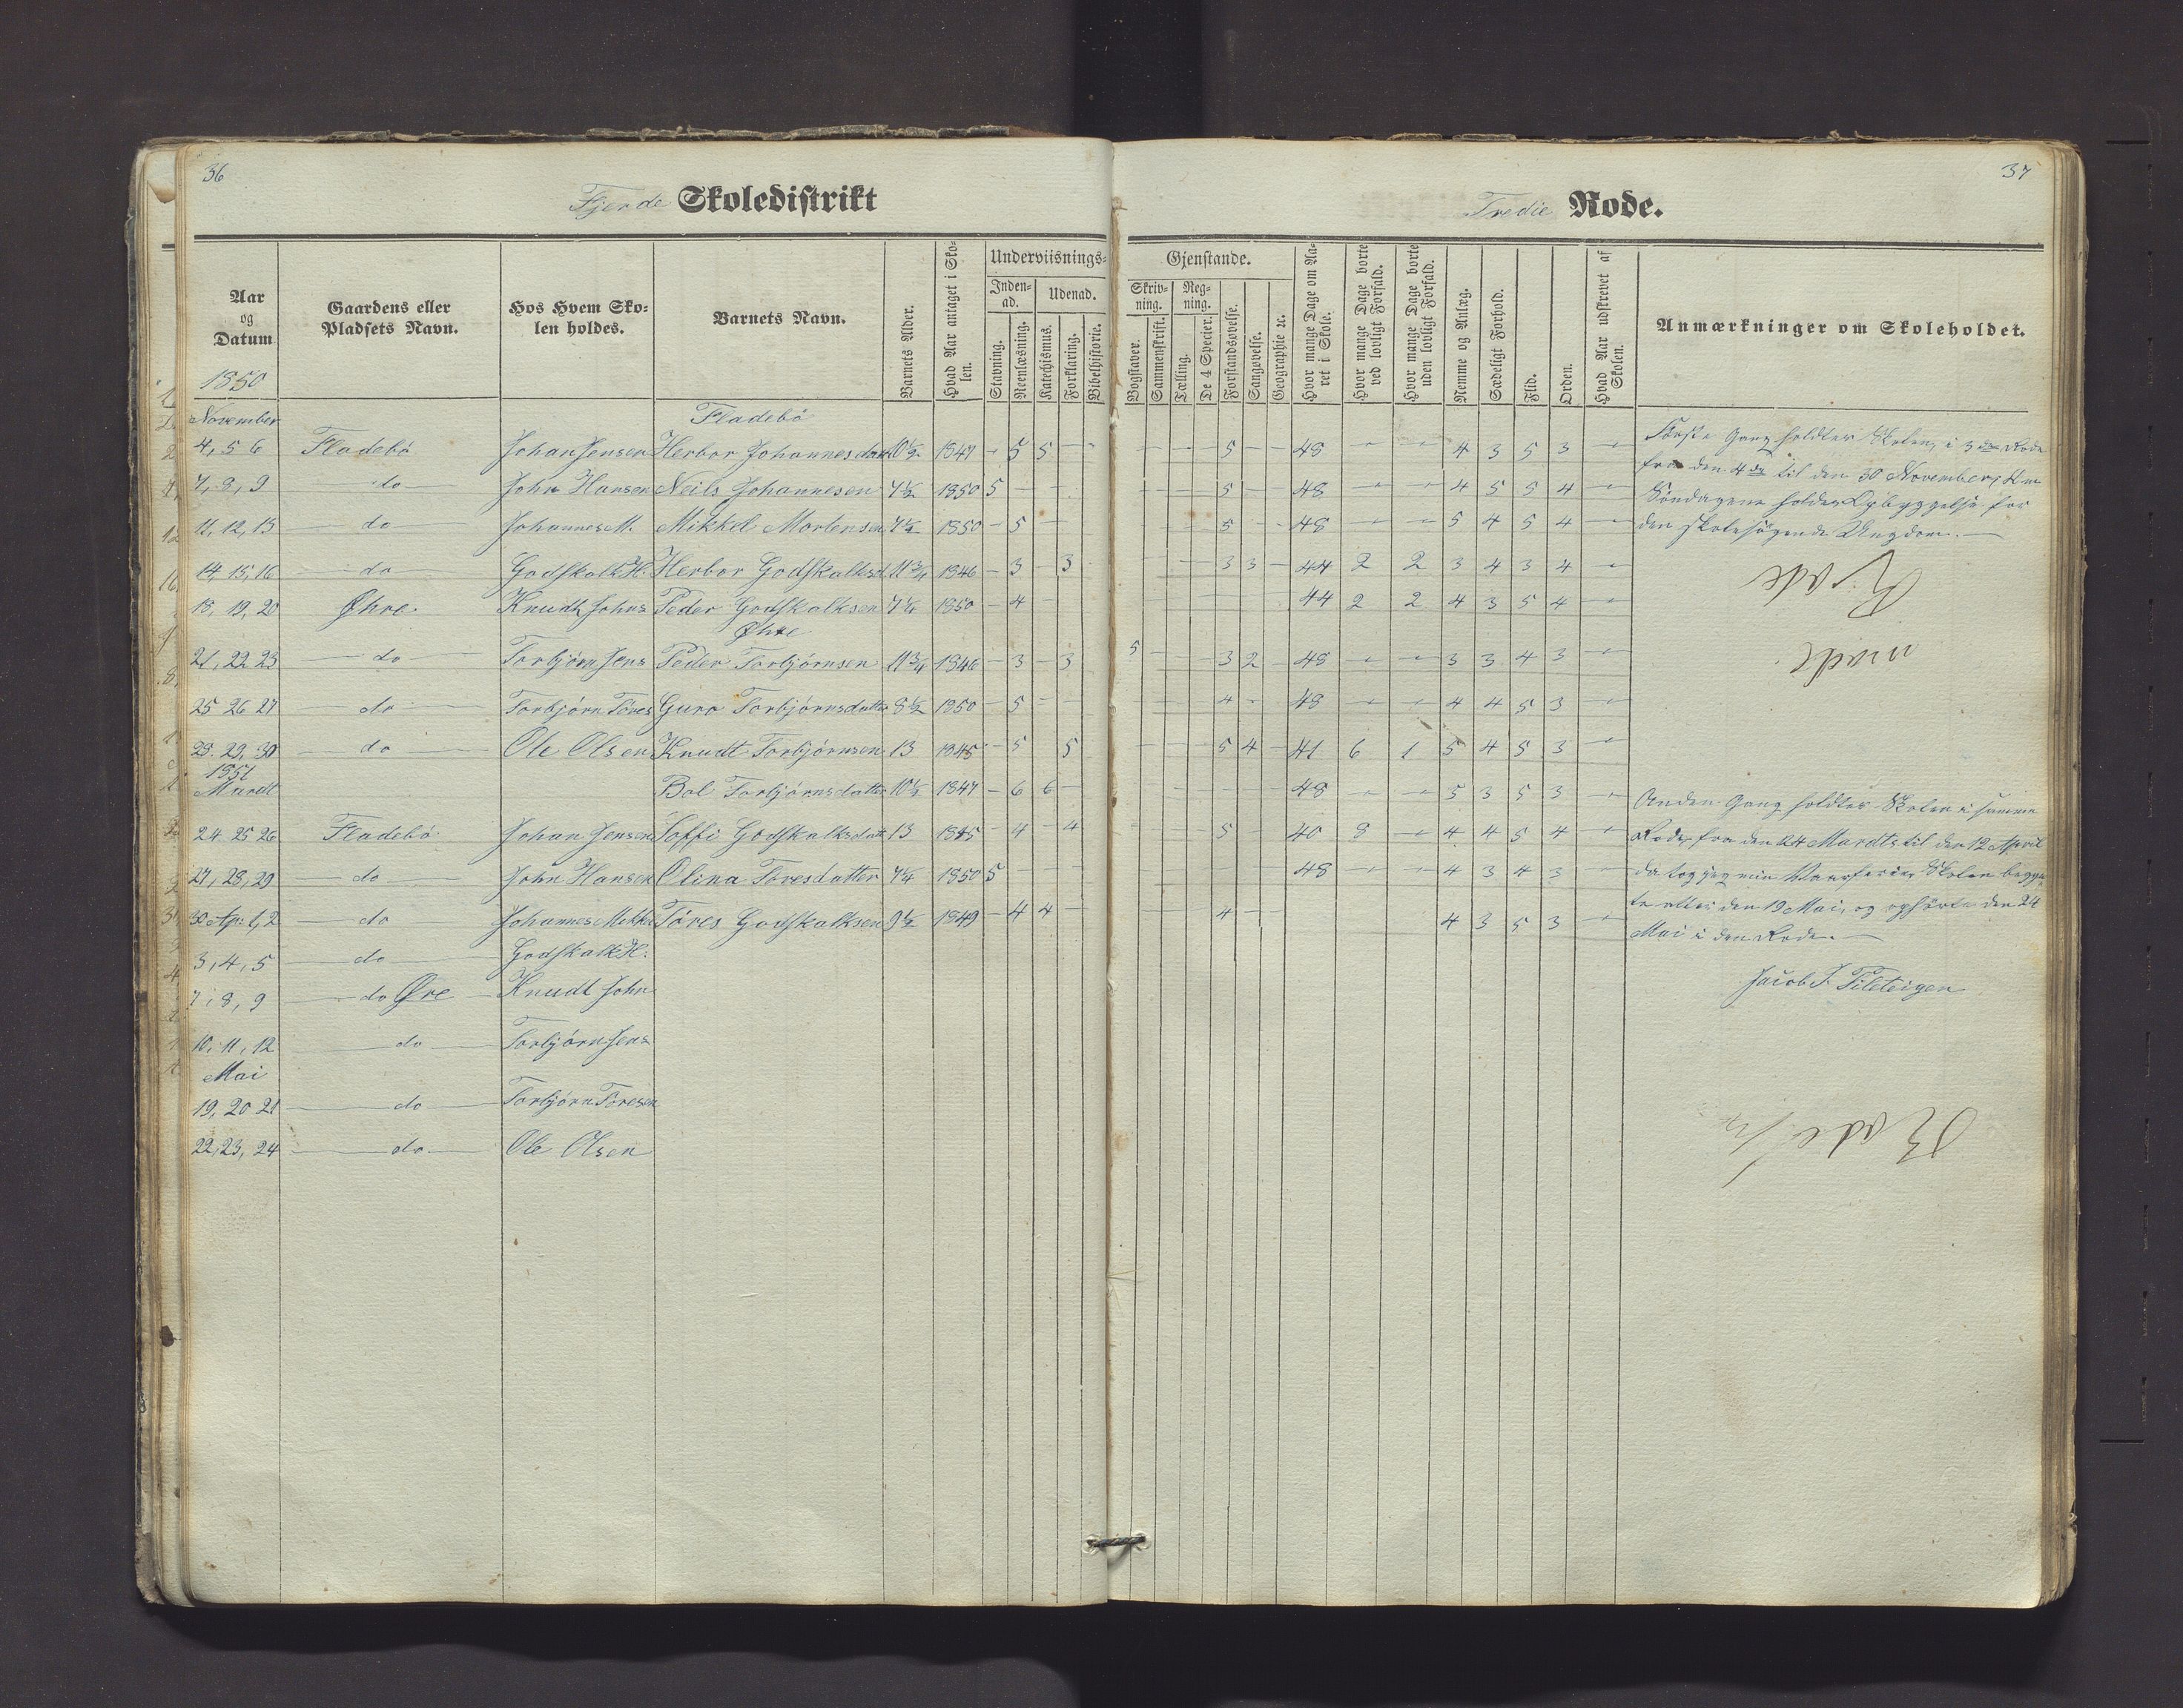 36
37
Fjerde Skoledistrikt
Tredie Rode.
Aar og Datum
Gaardens eller Pladsets Navn.
Hos Hvem Skolen holdes.
Barnets Navn.
Barnets Alder.
Hvad Aar antaget i Skolen.
Underviisnings-
Gjenstande.
Indenad.
Udenad.
Stavning.
Reenlæsning.
Katechismus.
Forklaring.
Bibelhistorie.
Skrivning.
Regning.
Bogstaver.
Sammenskrift.
Tælling.
De 4 Specier.
Forstandsøvelse.
Sangøvelse.
Geographie ꝛc.
Hvor mange Dage om Aaret i Skole.
Hvor mange Dage borte ved lovligt Forfald.
Hvor mange Dage borte uden lovligt Forfald.
Nemme og Anlæg.
Sædeligt Forhold.
Flid.
Orden.
Hvad Aar udskrevet af Skolen.
Anmærkninger om Skoleholdet.
1850
November
Fladebö
4, 5 6 Fladebö Johan Jensen Herbor Johannesdatt 10½ 1847 - 5 5 - - - - - - 5 - - 48 - - 4 3 5 3 -
7, 8, 9 do John Hansen Neils Johannesen 7½ 1850 5 - - - - - - - 5 - - 48 - - 4 5 5 4 -
11, 12, 13 do Johannes M. Mikkel Mortensen 7½ 1850 - 5 - - - - - 5 - - 48 - - 5 4 5 4 -
14, 15, 16 do Godskalk H. Herbor Godskalksd. 11¾ 1846 - 3 - 3 - - - - 3 3 - 44 2 2 3 4 3 4 -
18, 19, 20 Öhre Knudt Johns Peder Godskalksen 7¼ 1850 - 4 - - - - - - - 44 2 2 4 3 5 4 -
Öhre
21, 22 23 do Torbjörn Jens Peder Torbjörnsen 11¾ 1846 - 3 - 3 5 - - - 3 2 - 48 - - 3 3 4 3 -
25 26 27 do Torbjörn Töres Guro Torbjörnsdatter 8½ 1850 - 5 - - - - - 4 - 48 - - 4 4 5 3 -
28. 29, 30 do Ole Olsen Knudt Torbjörnsen 13 1845 - 5 5 - - - 5 4 - 41 6 1 5 4 5 3 -
1851
Mardt
Bol Torbjörnsdatter 10½ 1847 - 6 6 - - - - - - 48 - - 5 3 5 3 -
24 25 26 Fladebö Johan Jensen Soffi Godskalksdatt 13 1845 - 4 - 4 - - - 5 - 40 8 - 4 4 5 4 -
27, 28, 29 do John Hansen Olina Töresdatter 7¼ 1850 5 - - - - - - - - 48 - - 4 3 4 3 -
30 Apr: 1, 2 do Johannes Mikkel Töres Godskalksen 9½ 1849 - 4 4 - - - - 4 - 4 3 5 3 -
3, 4, 5 do Godskalk H.
7, 8, 9 do Öre Knudt John
10, 11, 12 do Torbjörn Jens
Mai
19, 20 21 do Torbjörn Töresen
22, 23, 24 do Ole Olsen
Förste Gang holdtes Skolen i 3die Rode
fra den 4de til den 30 November,
Söndagene holder Opbyggelse for
den skolesögende Ungdom. —
Anden Gang holdtes Skolen i samme
Rode, fra den 24 Mardts til den 12 April
da tog jeg min Vaarferie, Skolen begyn-
te atter den 19 Mai, og ophörte den 24
Mai i den Rode. —
Jacob J. Tileteigen